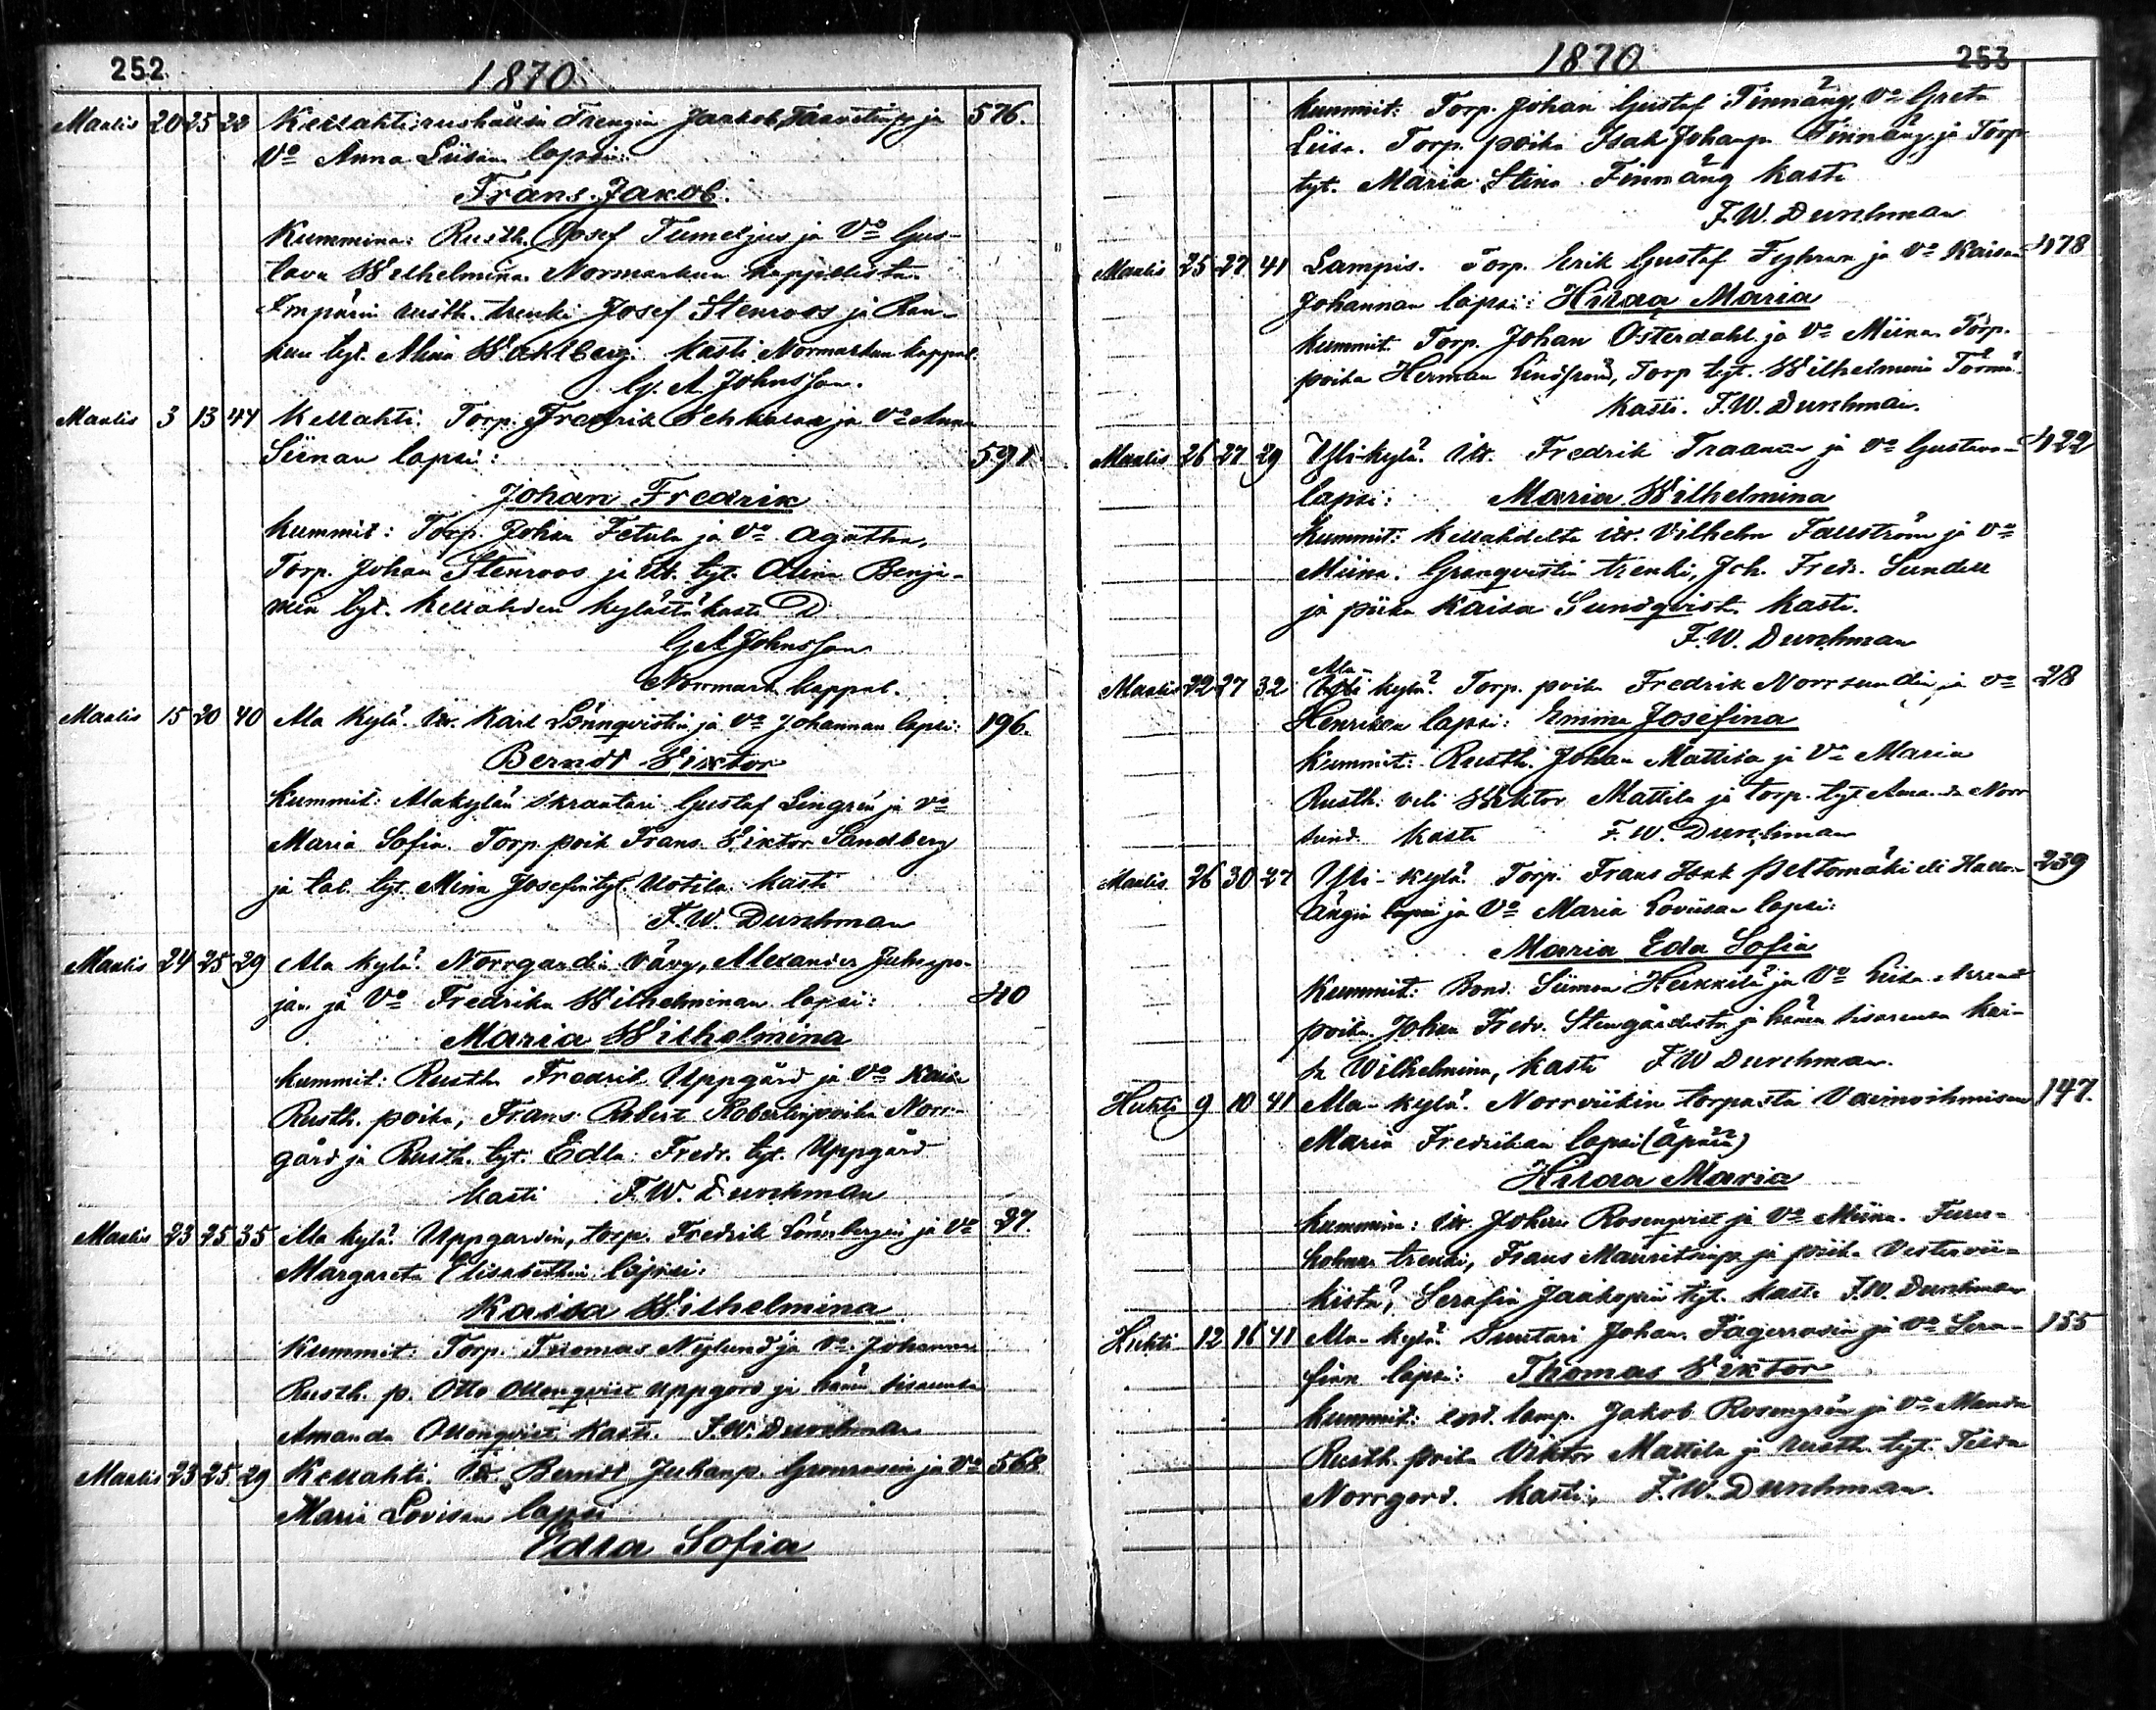 252
1870
Maalis 20 25 23 Kellahti, rushållin Trengin Jaakob Taavetinp. ja 576.
Vo Anna Liisan lapsi:
Frans Jakob.
Kummina: Rusth. Josef Tumeljus ja Vo Gus-
tava Wilhelmina Normarkun kappelista
rusth. trenki Josef Stenroos ja
tyt. Alina Wahlberg. Kasti Normarkun kappal.
G. A Johnsson.
Maalis 3 13 44 Kellahti. Torp. Fredrik ja Vo Anna
Siinan lapsi: 591
Johan Fredrik
Kummit: Torp. Johan ja Vo Agatha,
Torp. Johan Stenroos ja itt. tyt. Alina Benja-
min tyt. Kellahden kylästä kasti
G A Johnsson
Normark kappal.
Maalis 15 20 40 Ala kylä. itr. Karl Lönnqvistin ja Vo Johannan lapsi: 196.
Berndt Wiktor
Kummit: Alakylän skraatari Gustaf Lingrén ja Vo
Maria Sofia. Torp. poik Frans Wiktor Sandberg
ja tal. tyt. Miina Josefin tyt. Uotila. Kasti
F. W. Durchman
Maalis 24 25 29 Ala kylä. Norrgardin vävy, Alexander Juhanpo-
jan ja Vo Fredrika Wilhelminan lapsi: 40
Maria Wilhelmina
Kummit: Rusth. Fredrik Uppgård ja Vo Kaisa
Rusth. poika, Frans Robert Robertinpoika Norr-
gård ja Rusth. tyt. Edla Fredr. tyt. Uppgård
Kasti F. W. Durchman
Maalis 23 25 35 Ala kylä. Uppgardin, torp. Fredrik Lönnbergin ja Vo 27.
Margareta Elisabethin lapsi:
Kaisa Wilhelmina
Kummit: Torp. Thomas Nylund ja Vo Johanna
Rusth. p. Otto Ollonqvist Uppgord ja hänen sisarensa
Amanda Ollonqvist Kasti. F. W. Durchman
Maalis 23 25 29 Kellahti. Itr. Berndt Juhanp. Gronrosin ja Vo 568
Maria Lovisan lapsi
Edla Sofia
1870 253
Kummit: Torp. Johan Gustaf Finnäng, Vo Greta
Liisa. Torp. poika Isak Johanp. Finnäng, ja Torp.
tyt. Maria Stina Finnäng Kasti
F. W. Durchman
Maalis 25 27 41 Lampis. Torp. Erik Gustaf ja Vo Kaisan 478
Johannan lapsi: Hilda Maria
Kummit. Torp. Johan Österdahl ja Vo Miina. Torp.
poika Herman Lindfrord, Torp tyt. Wilhelmina
Kasti. F. W. Durchman.
Maalis 26 27 29 Yli-kylä. Itr. Fredrik ja Vo Gustava- 422
lapsi: Maria Wilhelmina
Kummit: Kellahdelta itr. Vilhelm Fallström ja Vo
Miina. Granqvistin trenki, Joh. Fredr. Sundell
ja piika Kaisa Sundqvist, Kasti.
F. W. Durchman
Maalis 22 27 32 Ala- kylä. Torp. poika Fredrik Norrsundin, ja Vo 28
Henrikan lapsi: Emma Josefina
Kummit: Rusth. Johan Mattila ja Vo Maria
Rusth. veli Wiktor Mattila ja torp. tyt Amanda Norr
sund. Kasti F. W. Durchman
Maalis 26 30 27 Yli-kylä. Torp. Frans Isak Peltomäki eli 239
ängin lapsi ja Vo Maria Loviisan lapsi:
Maria Eda Sofia
Kummit: Bond. Siimon Heikkilä ja Vo Liisa.
poika Johan Fredr. Stengårdista ja hänen sisarensa Kai-
sa Wilhelmina, Kasti F W Durchman.
Huhti 9 10 41 Ala-kylä. Norrviikin torpasta Vaimoihmisen 147.
Maria Fredrikan lapsi (äpärä)
Hilda Maria
Kummina: itr. Johan Rosenqvist ja Vo Miina. Furu-
holman trenki, Frans Mauritsinp. ja piika Vestervii-
kistä, Serafia Jaakopin tyt. Kasti F. W. Durchman
Huhti 12 16 41 Ala-kylä. Suutari Johan Fagerrosin ja Vo Sera- 155
finn lapsi: Thomas Wiktor
Kummit: lamp. Jakob Rosengrén ja Vo Manda
Rusth. poika Viktor Mattila ja rusth. tyt. Tilda
Norrgord. Kasti, F. W. Durchman.